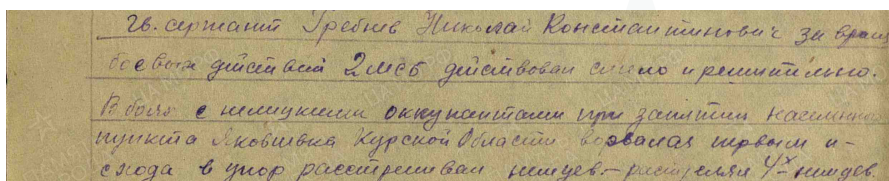 гв. сержант Гребнев Николай Константинович за время
боевых действий 2 мсб действовал смело и решительно.
В боях с немецкими оккупантами при занятии населенного
пункта Яковлевка Курской Области ворвался первым и
с хода в упор расстреливал немцев – расстрелял 4х немцев.